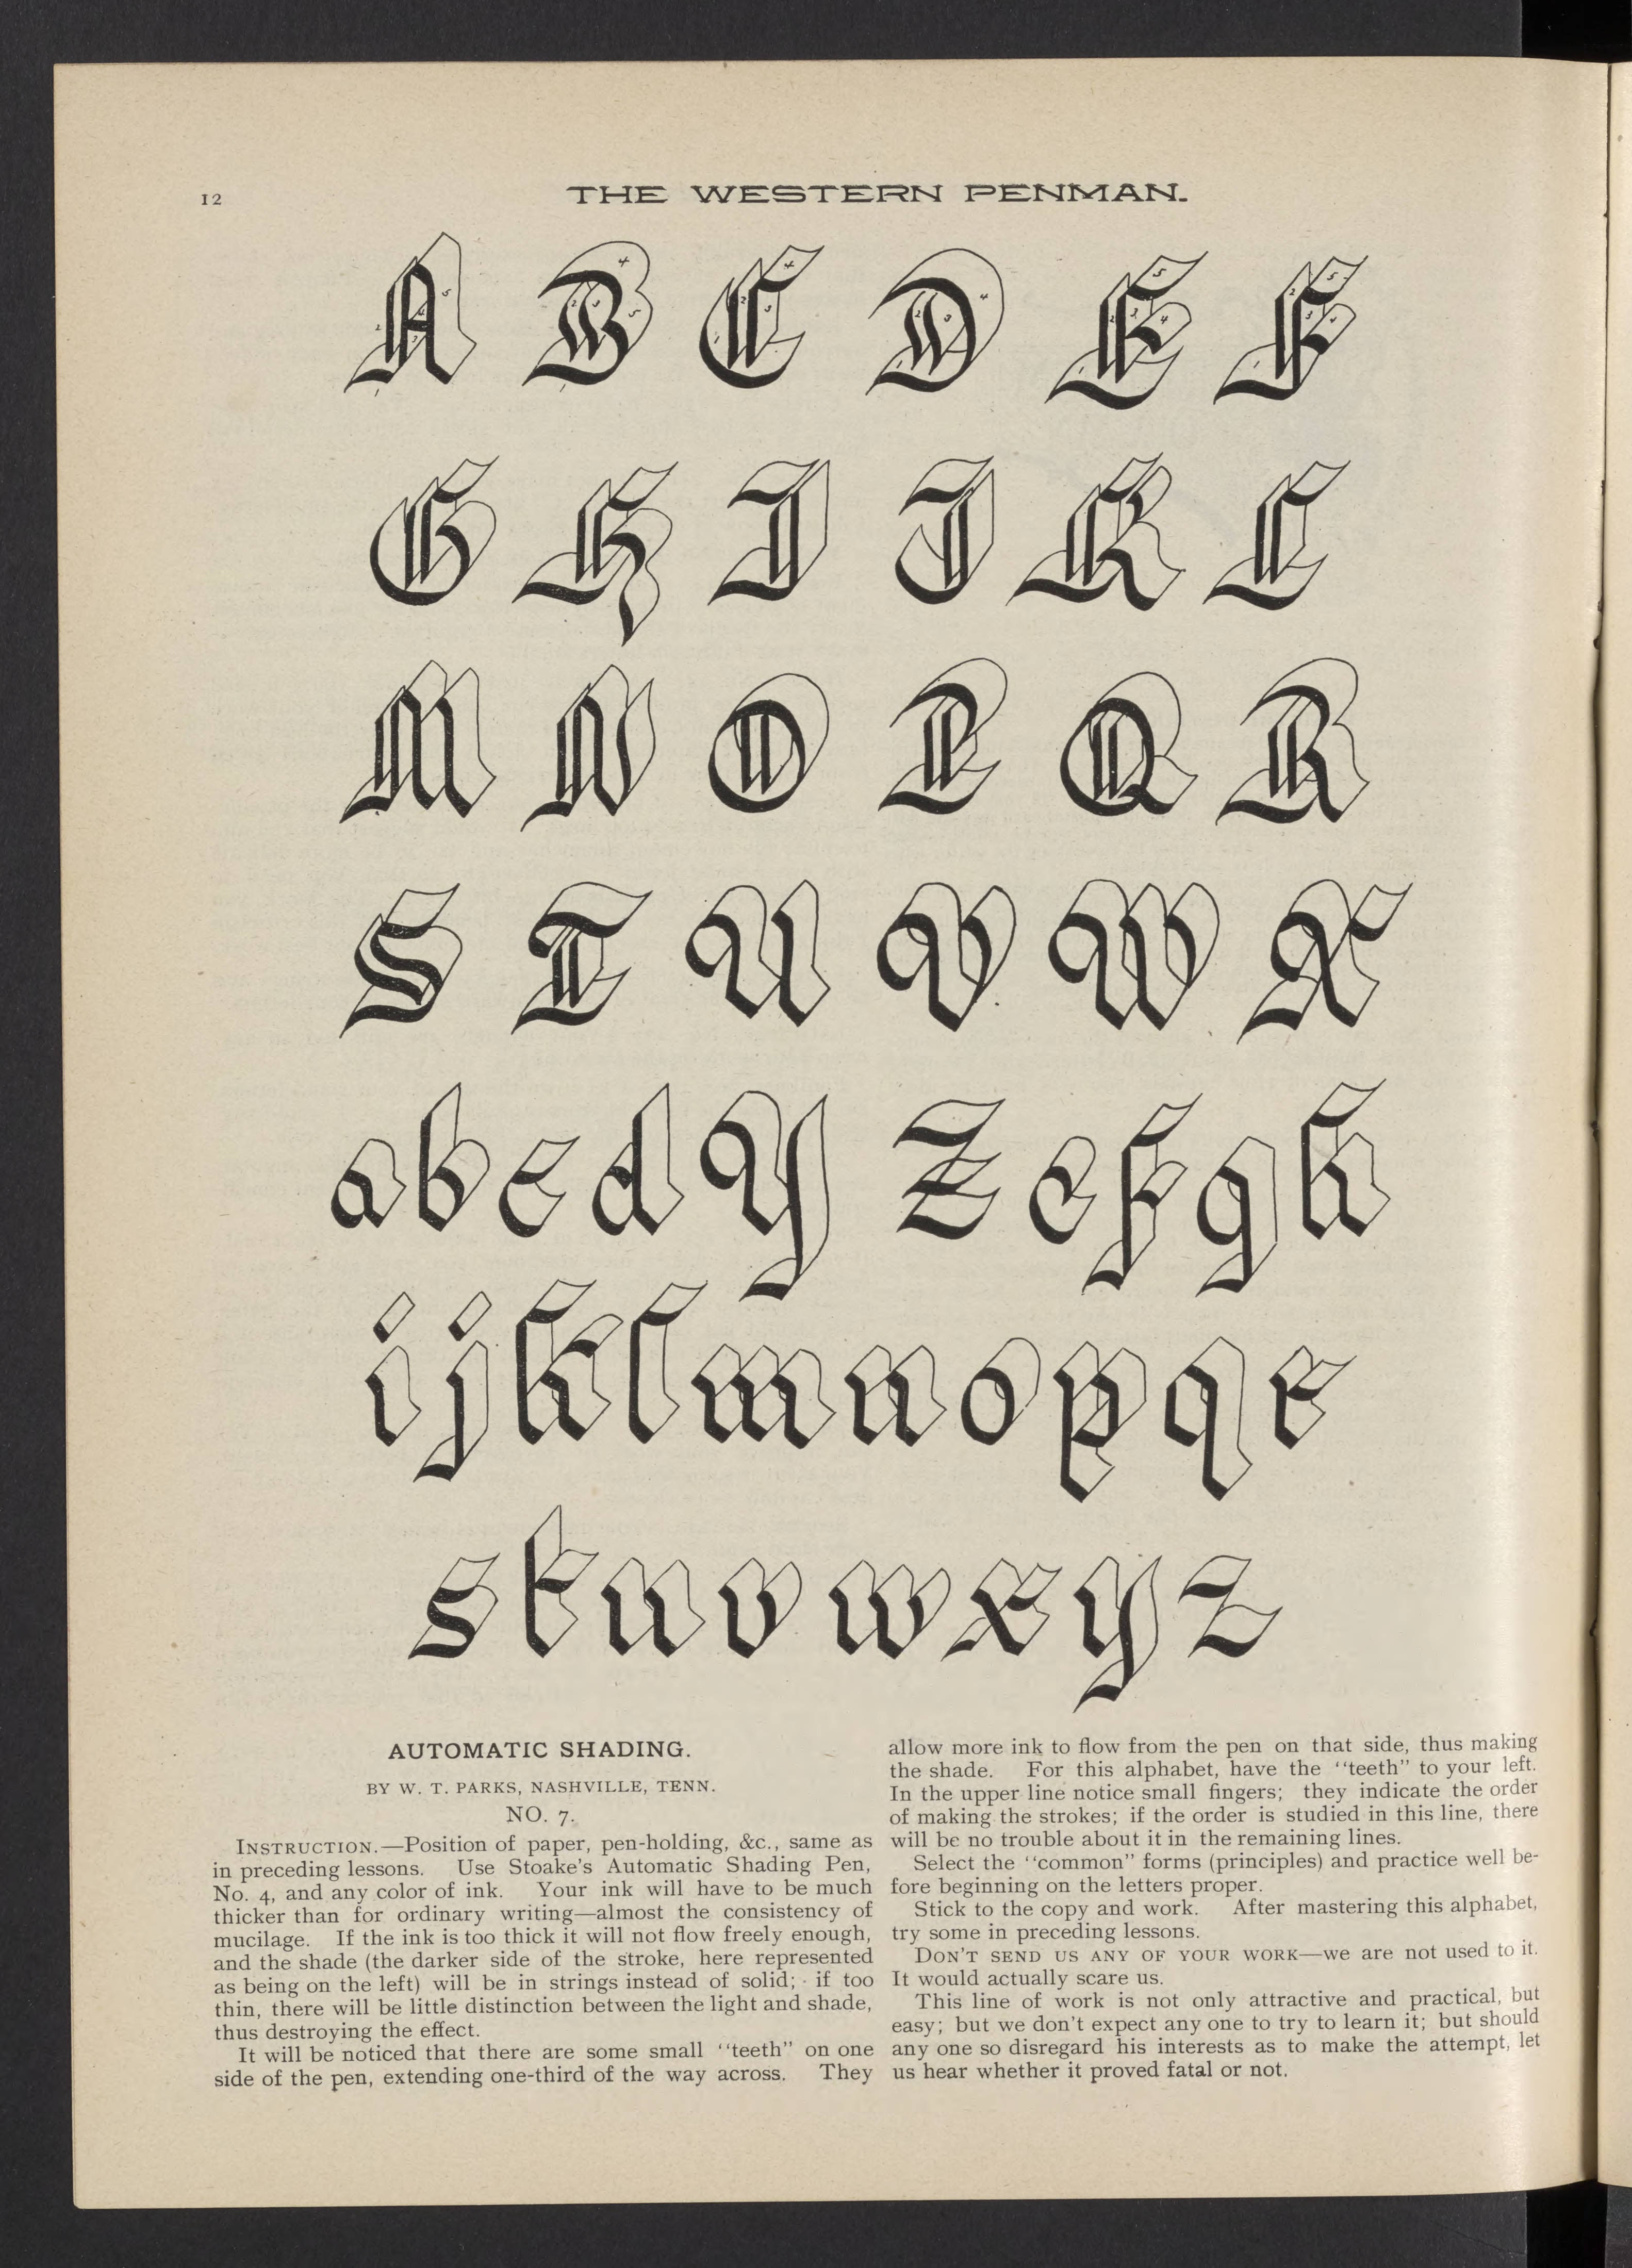 12
THE WESTERN PENMAN.
A B C D E F
G H I J K L
M N O P Q R
S T U V W X
a b c d Y Z e f g h
i j k l m n o p q r
s t u v w x y z
AUTOMATIC SHADING.
BY W. T. PARKS, NASHVILLE, TENN.
NO. 7.
INSTRUCTION.—Position of paper, pen-holding, &c., same as
in preceding lessons. Use Stoake's Automatic Shading Pen,
No. 4, and any color of ink. Your ink will have to be much
thicker than for ordinary writing—almost the consistency of
mucilage. If the ink is too thick it will not flow freely enough,
and the shade (the darker side of the stroke, here represented
as being on the left) will be in strings instead of solid; if too
thin, there will be little distinction between the light and shade,
thus destroying the effect.
It will be noticed that there are some small "teeth" on one
side of the pen, extending one-third of the way across. They
allow more ink to flow from the pen on that side, thus making
the shade. For this alphabet, have the "teeth" to your left.
In the upper line notice small fingers; they indicate the order
of making the strokes; if the order is studied in this line, there
will be no trouble about it in the remaining lines.
Select the "common" forms (principles) and practice well be-
fore beginning on the letters proper.
Stick to the copy and work. After mastering this alphabet,
try some in preceding lessons.
DON'T SEND US ANY OF YOUR WORK—we are not used to it.
It would actually scare us.
This line of work is not only attractive and practical, but
easy; but we don't expect any one to try to learn it; but should
any one so disregard his interests as to make the attempt, let
us hear whether it proved fatal or not.